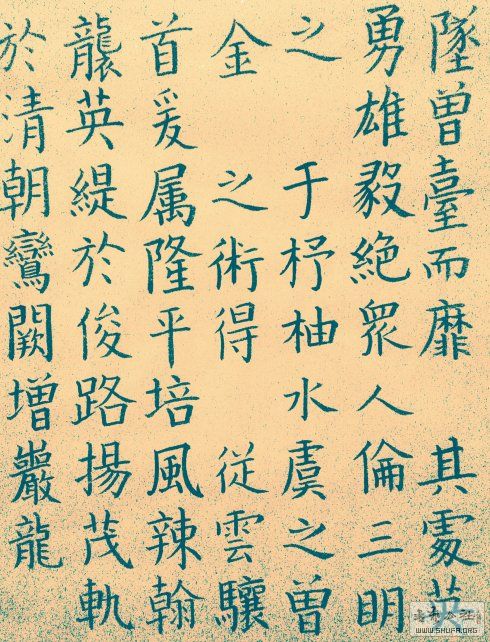 墜曾臺而靡 其處
勇雄毅絶眾人倫三明
之 于杼柚水虞之曽
金 之術得 従雲驤
首爰属隆平培風辣翰
襲英緹於俊路揚茂軌
於清朝鸞闕增巖龍
WWW.SHUFA.ORG